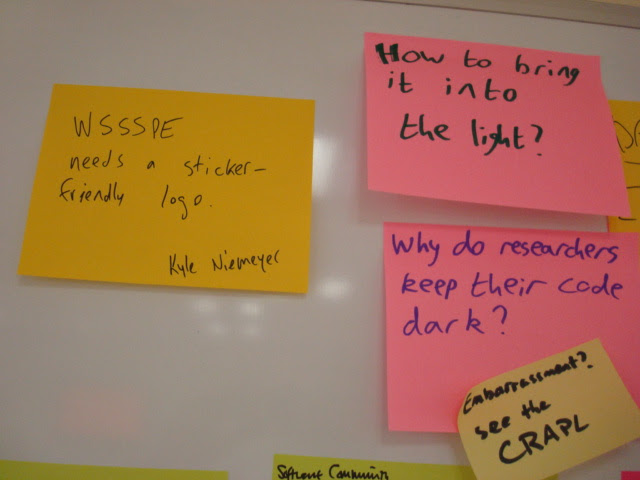 WSSSPE
needs a sticker-
friendly logo.
Kyle Niemeyer
How to bring
it into
the light?
Why do researchers
keep their code
dark?
Embarrassment?
see the
CRAPL
Software Community